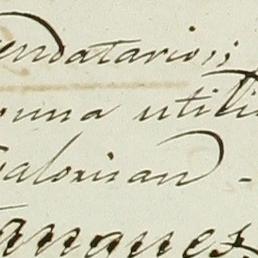 endatarios;
una utili
valorizan -
tanques